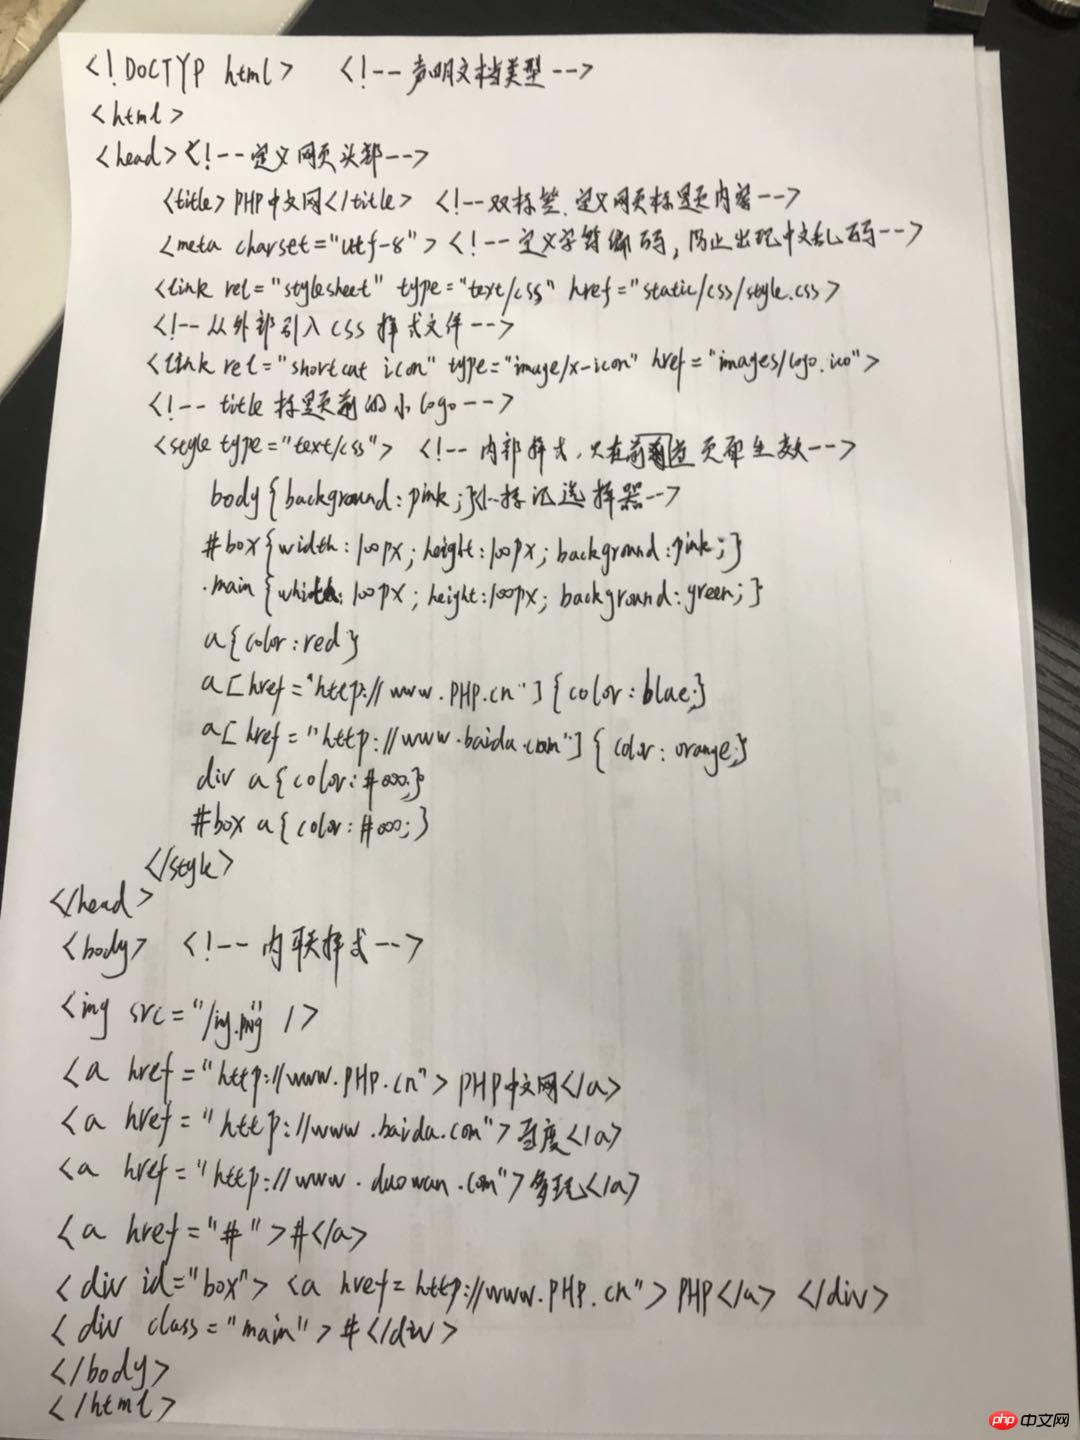 <!DOCTYP html> <!--声明文档类型-->
<html>
<head><!--定义网页头部-->
<title>PHP中文网</title> <!--双标签.定义网页标题内容-->
<meta charset="utf-8"> <!--定义字符编码,防止出现中文乱码-->
<link rel="stylesheet" type="text/css" href="static/css/style.css>
<!--从外部引入css样式文件-->
<link rel="shortcut icon" type="image/x-icon" href="images/logo.ico">
<!--title标题前的小logo-->
<style type="text/css"> <!--内部样式,只在当前页面生效-->
body{background:pink;}<!--标记选择器-->
#box{width:100px;height:100px;background:pink;}
.main{whidth:100px;height:100px;background:green;}
a{color:red}
a[href="http://www.PHP.cn"]{color:blue;}
a[href="http://www.baidu.com"]{color:orange;}
div a{color:#000;}
#box a{color:#000;}
</style>
</head>
<body> <!--内联样式-->
<img src="/ig.png" />
<a href="http://www.PHP.cn">PHP中文网</a>
<a href="http://www.baidu.com">百度</a>
<a href="http://www.duowan.com">多玩</a>
<a href="#">#</a>
<div id="box"> <a href=http://www.PHP.cn">PHP</a> </div>
<div class="main">#</div>
</body>
</html>
php 中文网